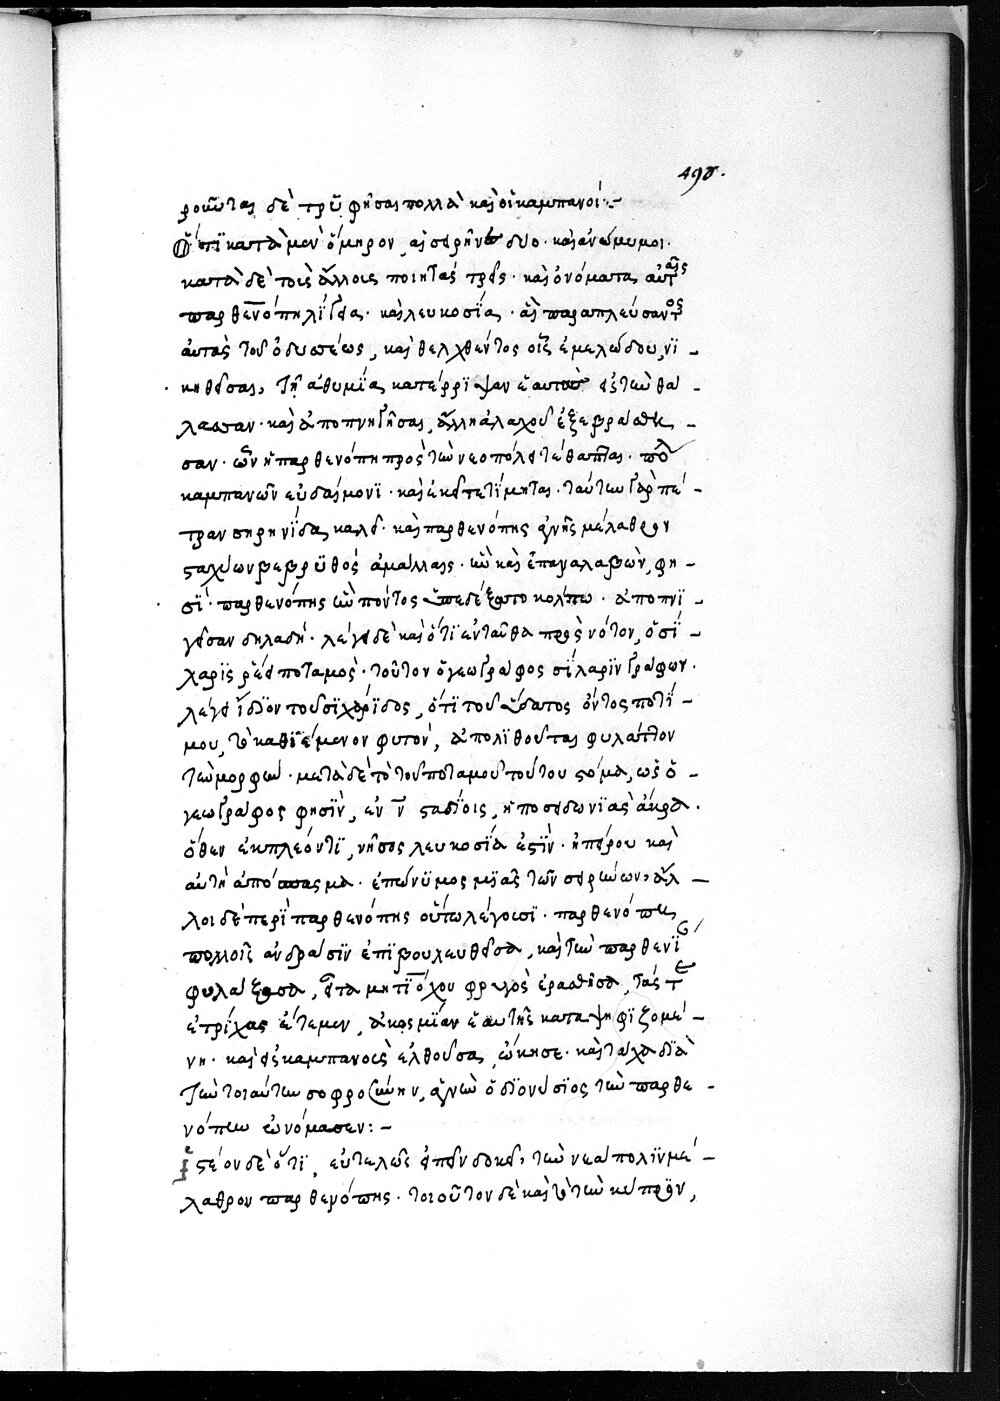 498.
ροιῶνται δὲ τρυφῆσαι πολλὰ καὶ οἱ καμπανοί:-
Ὅτι κατὰ μὲν ὅμηρον, αἱ σειρῆνες δύο· καὶ ἀνώνυμοι·
κατὰ δὲ τοὺς ἄλλους ποιητὰς τρεῖς· καὶ ὀνόματα αὐταῖς
παρθενόπη λίγεια· καὶ λευκοσία· ἃς παραπλεύσαντος
αὐτὰς τοῦ ὀδυσσέως, καὶ θελχθέντος οἷς ἐμελώδουν, νι-
κηθεῖσαι, τῇ ἀθυμίᾳ κατέρριψαν ἑαυτὰς εἰς τὴν θά-
λασσαν· καὶ ἀποπνιγεῖσαι, ἄλλη ἀλαχοῦ ἐξεβράσθη-
σαν· ὧν ἡ παρθενόπη πρὸς τὴν νεοπόλει τέθαπται·
καμπανῶν εὐδαίμονι· καὶ ἐκεῖ τετίμηται· ταύτην γὰρ πέ-
τραν σηρηνίδα καλεῖ· καὶ παρθενόπης ἁγνῆς μέλαθρον
σταχύων βεβρϋθὸς ἀμάλλαις· ὃ καὶ ἐπαναλαβὼν, φη-
σί· παρθενόπης ἣν πόντος ὑπεδέξατο κόλπω· ἀποπνι-
γεῖσαν δηλαδή· λέγει δὲ καὶ ὅτι ἐνταῦθα πρὸς νότον, ὁ σί-
χαρις ῥέει ποταμὸς· τοῦτον ὁ γεωγράφος σίλαριν γράφων·
λέγει ἴδιον τοῦ σιχάριδος, ὅτι τοῦ ὕδατος ὄντος ποτί-
μου, τὸ καθιέμενον φυτὸν, ἀπολιθοῦται φυλάττον
τὴν μορφήν· μετὰ δὲ τὸ τοῦ ποταμοῦ τούτου στόμα, ὡς ὁ
γεωγράφος φησὶν, ἐν ν̄ σταδίοις, ἡ ποσειδωνιὰς ἄκρα·
ὅθεν ἐκπλέοντι, νῆσος λευκοσία ἐστὶν· ἠπείρου καὶ
αὐτὴ ἀπόσπασμα· ἐπώνυμος μιᾶς τῶν σειρήνων, ἄλ-
λοι δὲ περὶ παρθενόπης οὕτω λέγουσι· παρθενόπη
πολλοῖς ἀνδράσιν ἐπιβουλευθεῖσα, καὶ τὴν παρθενί
φυλάξασα, εἶτα μητιόχου φρυγὸς ἐρασθεῖσα, τάς τ
ε τρίχας ἔτεμεν, ἀκοσμίαν ἑαυτῆς καταψηφιζομέ-
νη· καὶ εἰς καμπανοὺς ἐλθοῦσα, ὤκησε· καὶ τάχα διὰ
τὴν τοιαύτην σοφροσύνην, ἁγνὴν ὁ διονύσιος τὴν παρθε-
νόπην ὠνόμασεν:-
Ἰστέον δὲ ὅτι, εὐτελῶς εἰπεῖν δοκεῖ, τὴν νεάπολιν μέ-
λαθρον παρθενόπης· τοιοῦτον δὲ καὶ τὸ τὴν κύπρον,